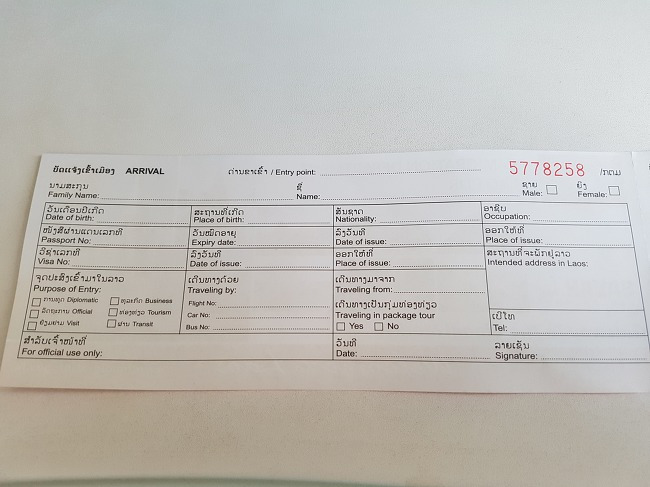 ບັດແຈ້ງເຂົ້າເມືອງ ARRIVAL ດ່ານຂາເຂົ້າ / Entry point: 5778258 /ກຕມ
ນາມສະກຸນ ຊື່ ຊາຍ ຍິງ
Family Name: Name: Male: Female:
ວັນເດືອນປີເກີດ ສະຖານທີ່ເກີດ ສັນຊາດ ອາຊີບ
Date of birth: Place of birth: Nationality: Occupation:
ໜັງສືຜ່ານແດນເລກທີ ວັນໝົດອາຍຸ ລົງວັນທີ ອອກໃຫ້ທີ່
Passport No: Expiry date: Date of issue: Place of issue:
ວີຊາເລກທີ ລົງວັນທີ ອອກໃຫ້ທີ່ ສະຖານທີ່ຈະພັກຢູ່ລາວ
Visa No: Date of issue: Place of issue: Intended address in Laos:
ຈຸດປະສົງເຂົ້າມາໃນລາວ ເດີນທາງດ້ວຍ ເດີນທາງມາຈາກ
Purpose of Entry: Traveling by: Traveling from:
ການທູດ Diplomatic ທຸລະກິດ Business Flight No: ເດີນທາງເປັນກຸ່ມທ່ອງທ່ຽວ
ລັດຖະການ Official ທ່ອງທ່ຽວ Tourism Car No: Traveling in package tour ເບີໂທ
ຢ້ຽມຢາມ Visit ຜ່ານ Transit Bus No: Yes No Tel:
ສຳລັບເຈົ້າໜ້າທີ່ ວັນທີ ລາຍເຊັນ
For official use only: Date: Signature: